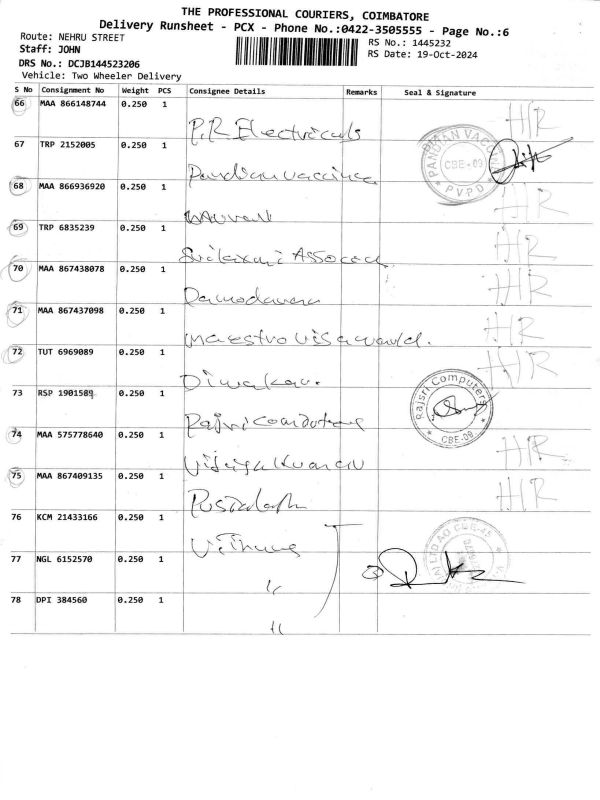 THE PROFESSIONAL COURIERS, COIMBATORE
Delivery Runsheet - PCX - Phone No.:0422-3505555 - Page No.:6
Route: NEHRU STREET
RS No.: 1445232
Staff: JOHN
RS Date: 19-Oct-2024
DRS No.: DCJB144523206
Vehicle: Two Wheeler Delivery
S No Consignment No Weight PCS Consignee Details Remarks Seal & Signature
66 MAA 866148744 0.250 1 H/R
P.R Electricals
67 TRP 2152005 0.250 1 PANDIAN VACCINE CBE-09 PVPD
Pandian vaccines
68 MAA 866936920 0.250 1 H/R
69 TRP 6835239 0.250 1 H/R
Srilaxmi Associa
70 MAA 867438078 0.250 1 H/R
Damodaran
71 MAA 867437098 0.250 1 H/R
Maestro visa world.
72 TUT 6969089 0.250 1 H/R
Diwakar.
73 RSP 1901589 0.250 1 Rajsri Computers CBE-09
Rajsri computers
74 MAA 575778640 0.250 1 H/R
75 MAA 867409135 0.250 1 H/R
76 KCM 21433166 0.250 1
77 NGL 6152570 0.250 1
"
78 DPI 384560 0.250 1
"